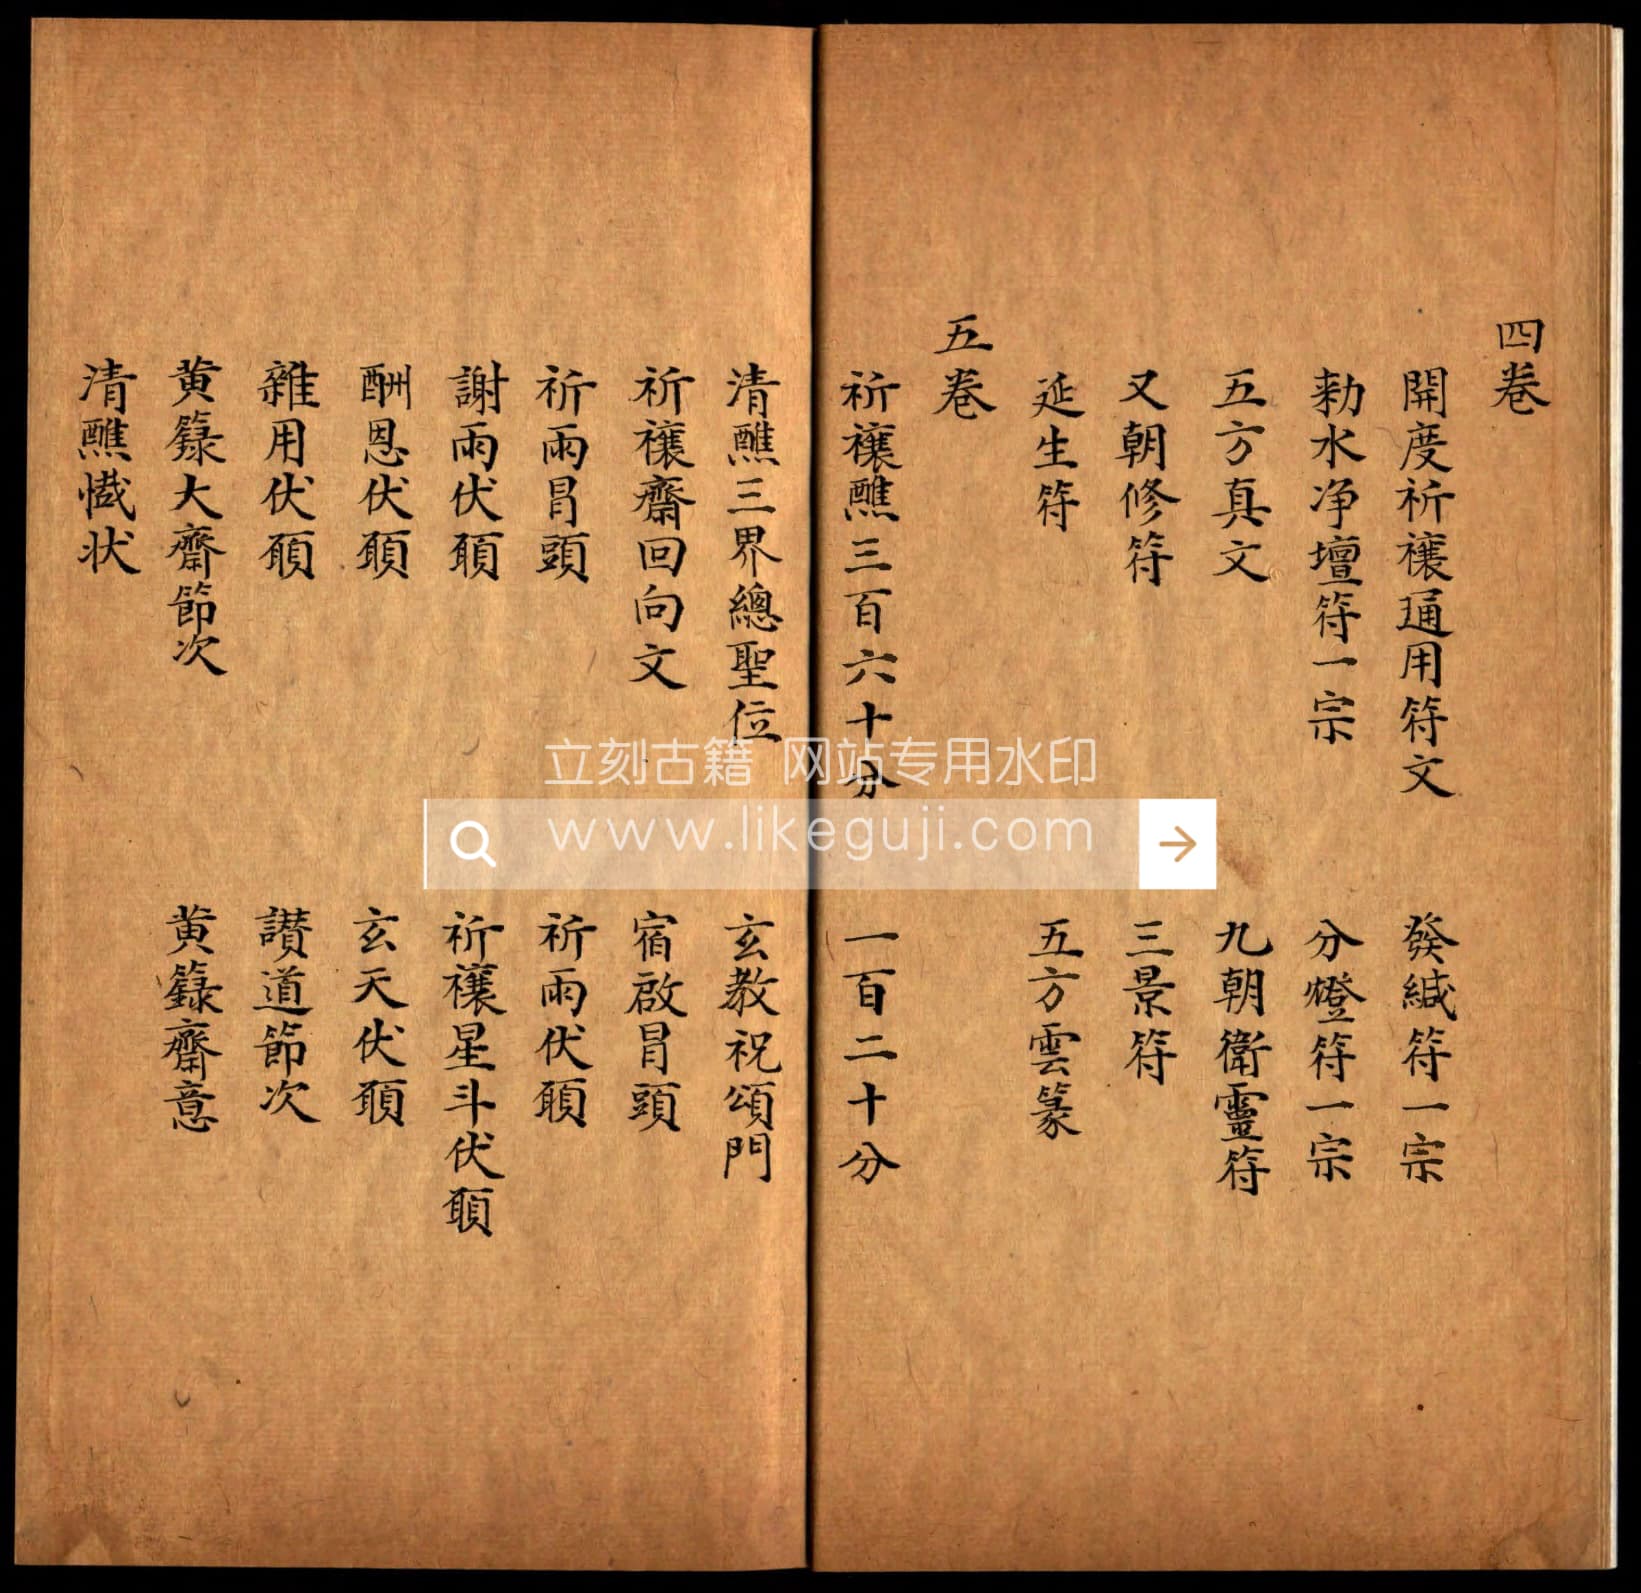 四卷
開度祈禳通用符文　發緘符一宗
勑水净壇符一宗　分燈符一宗
五方真文　九朝衛靈符
又朝修符　三景符
延生符　五方雲篆
五卷
祈禳醮三百六十分　一百二十分
清醮三界總聖位　玄教祝頌門
祈禳齋回向文　宿啟冒頭
祈雨冒頭　祈雨伏願
謝雨伏願　祈禳星斗伏願
酬恩伏願　玄天伏願
雜用伏願　讃道節次
黄籙大齋節次　黄籙齋意
清醮懴状
立刻古籍 网站专用水印
www.likeguji.com